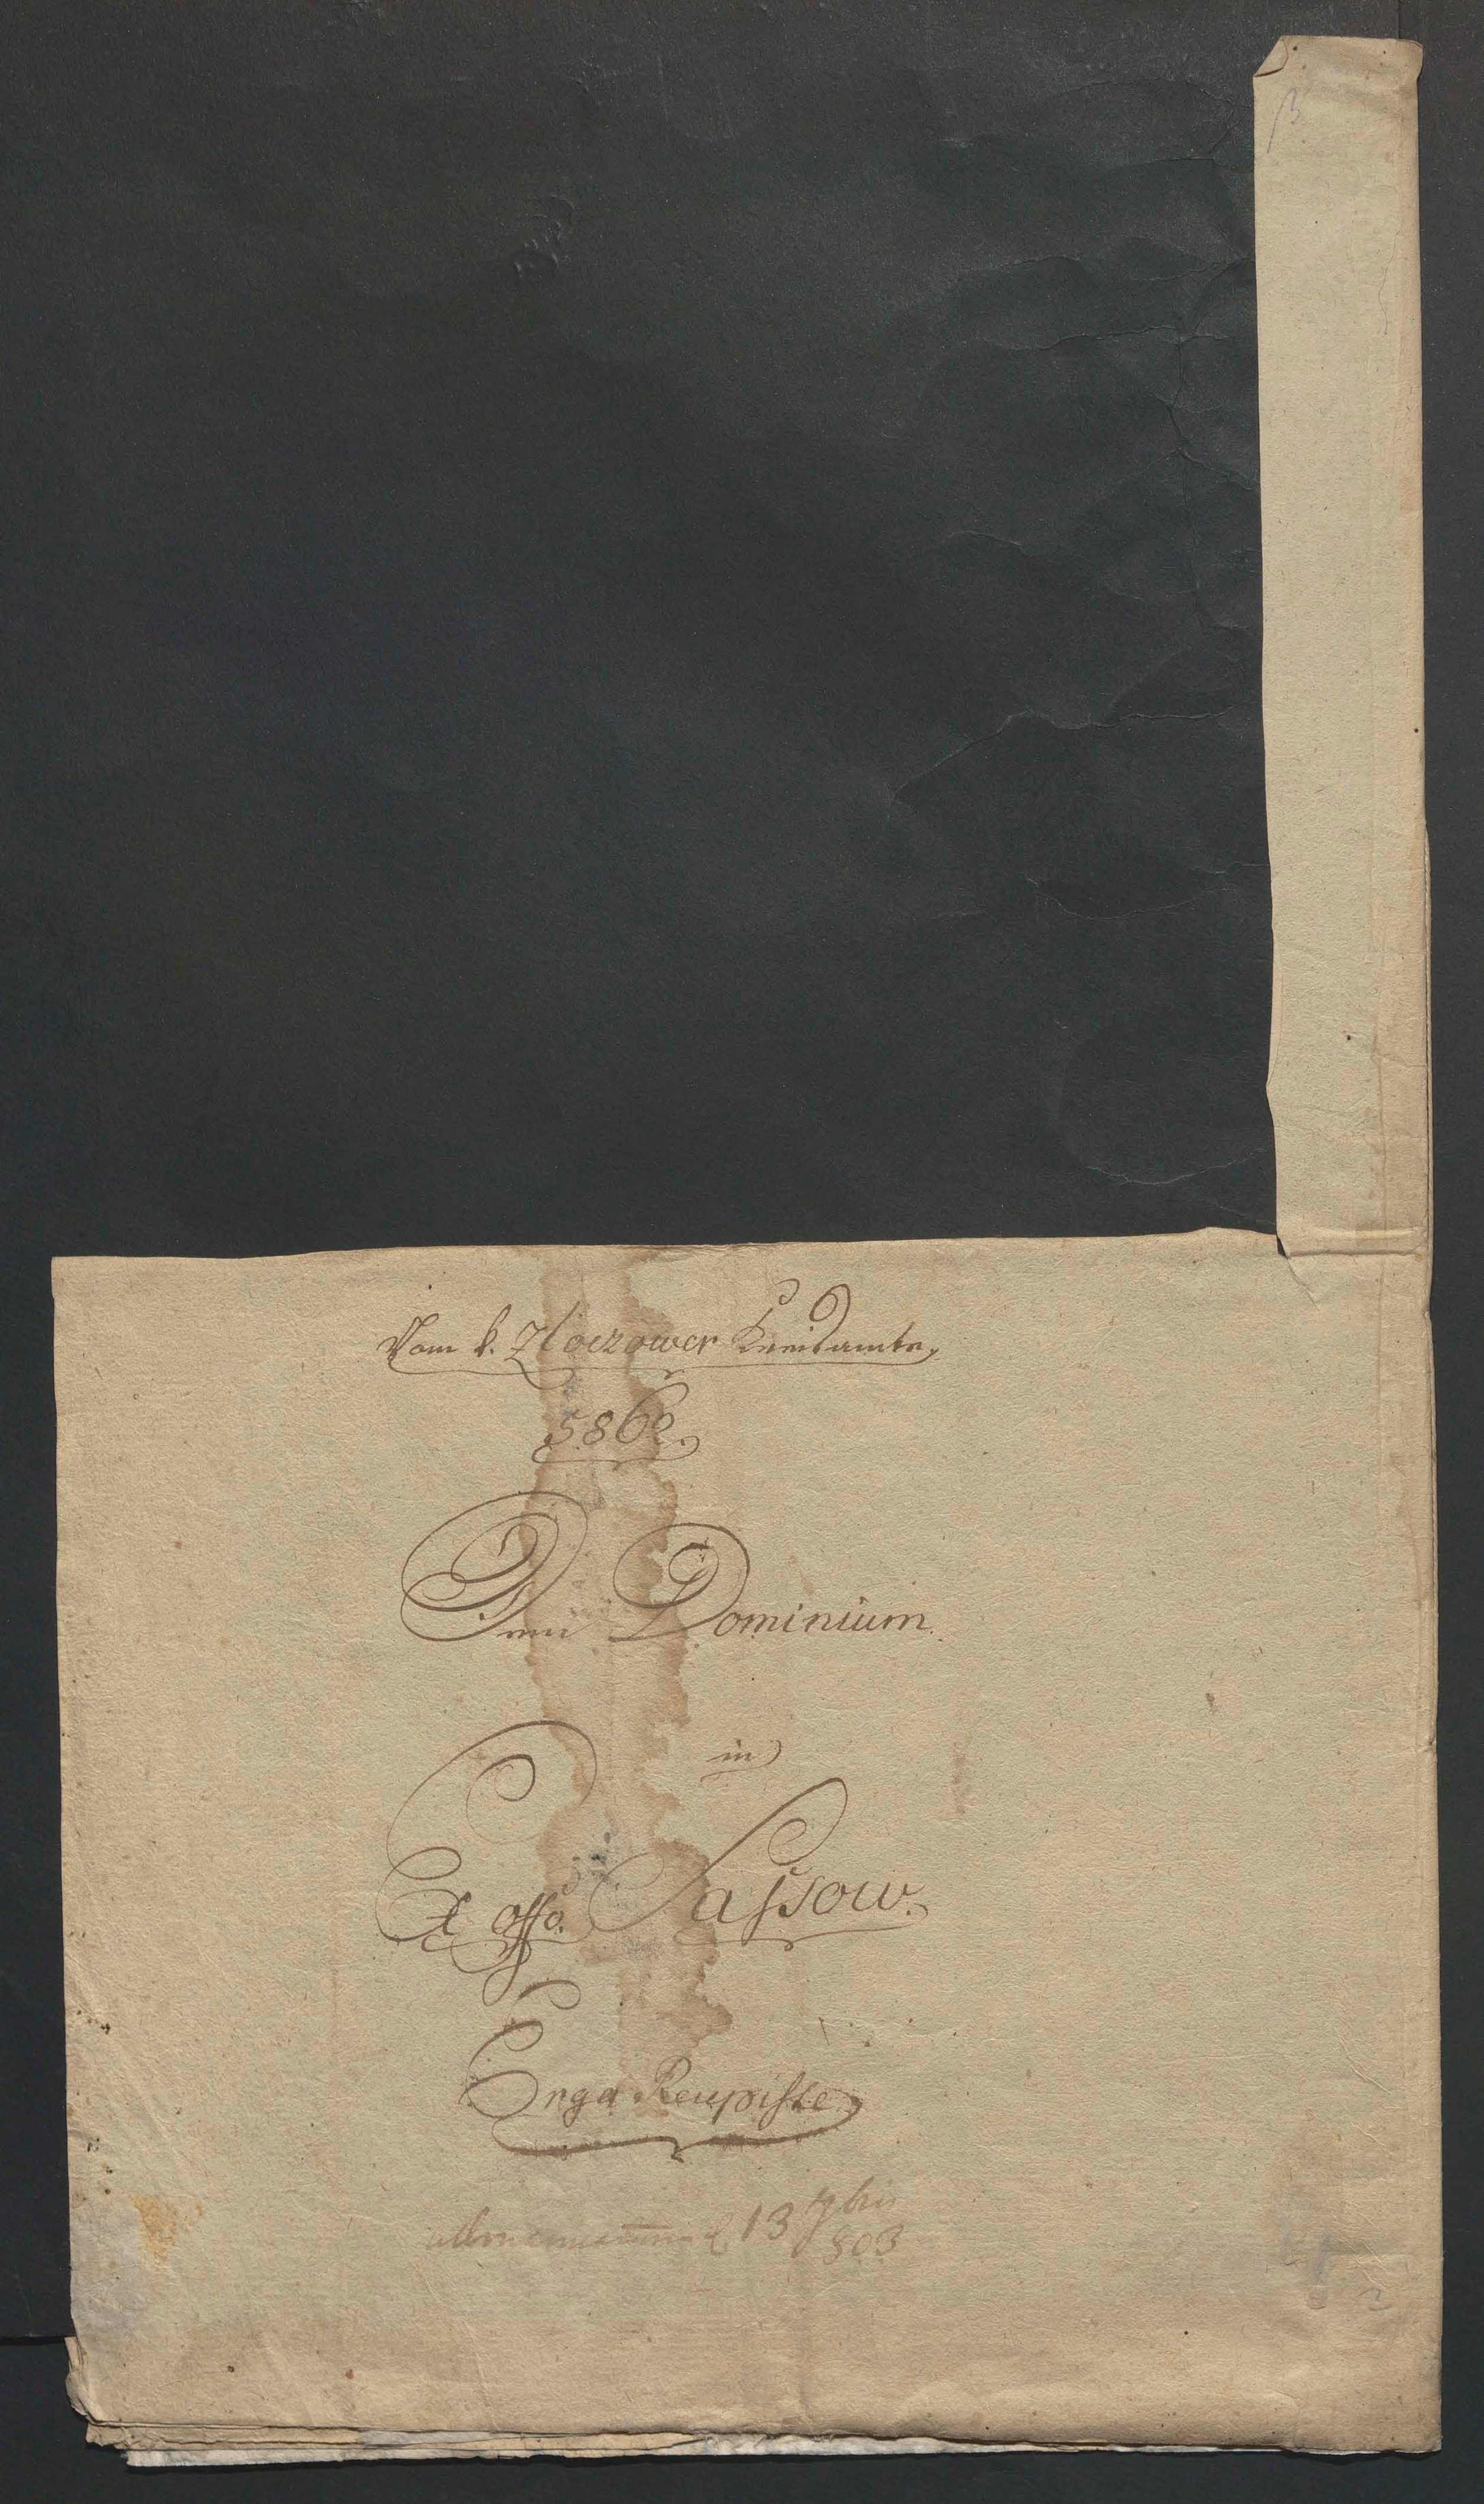 Vom k. Zloczower Kreisamte,
5862.
Dem Dominium
in
Ex offo. Sassow.
Erga Recepisse
13 7bris
803